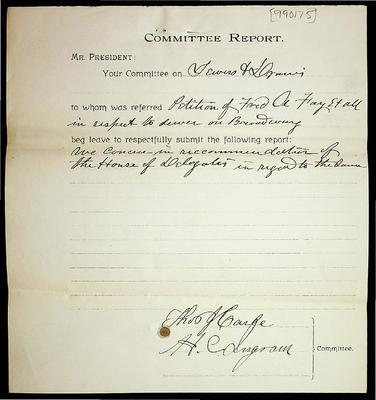 [990175]
COMMITTEE REPORT.
MR. PRESIDENT:
Your Committee on Sewers & Drains
to whom was referred Petition of Fred A Fay Et all
in respect to sewer on Broadway
beg leave to respectfully submit the following report:
We Concur in recommendation of
the House of Delegates in regard to the same
Thos J
H. C. Ingram
Committee.